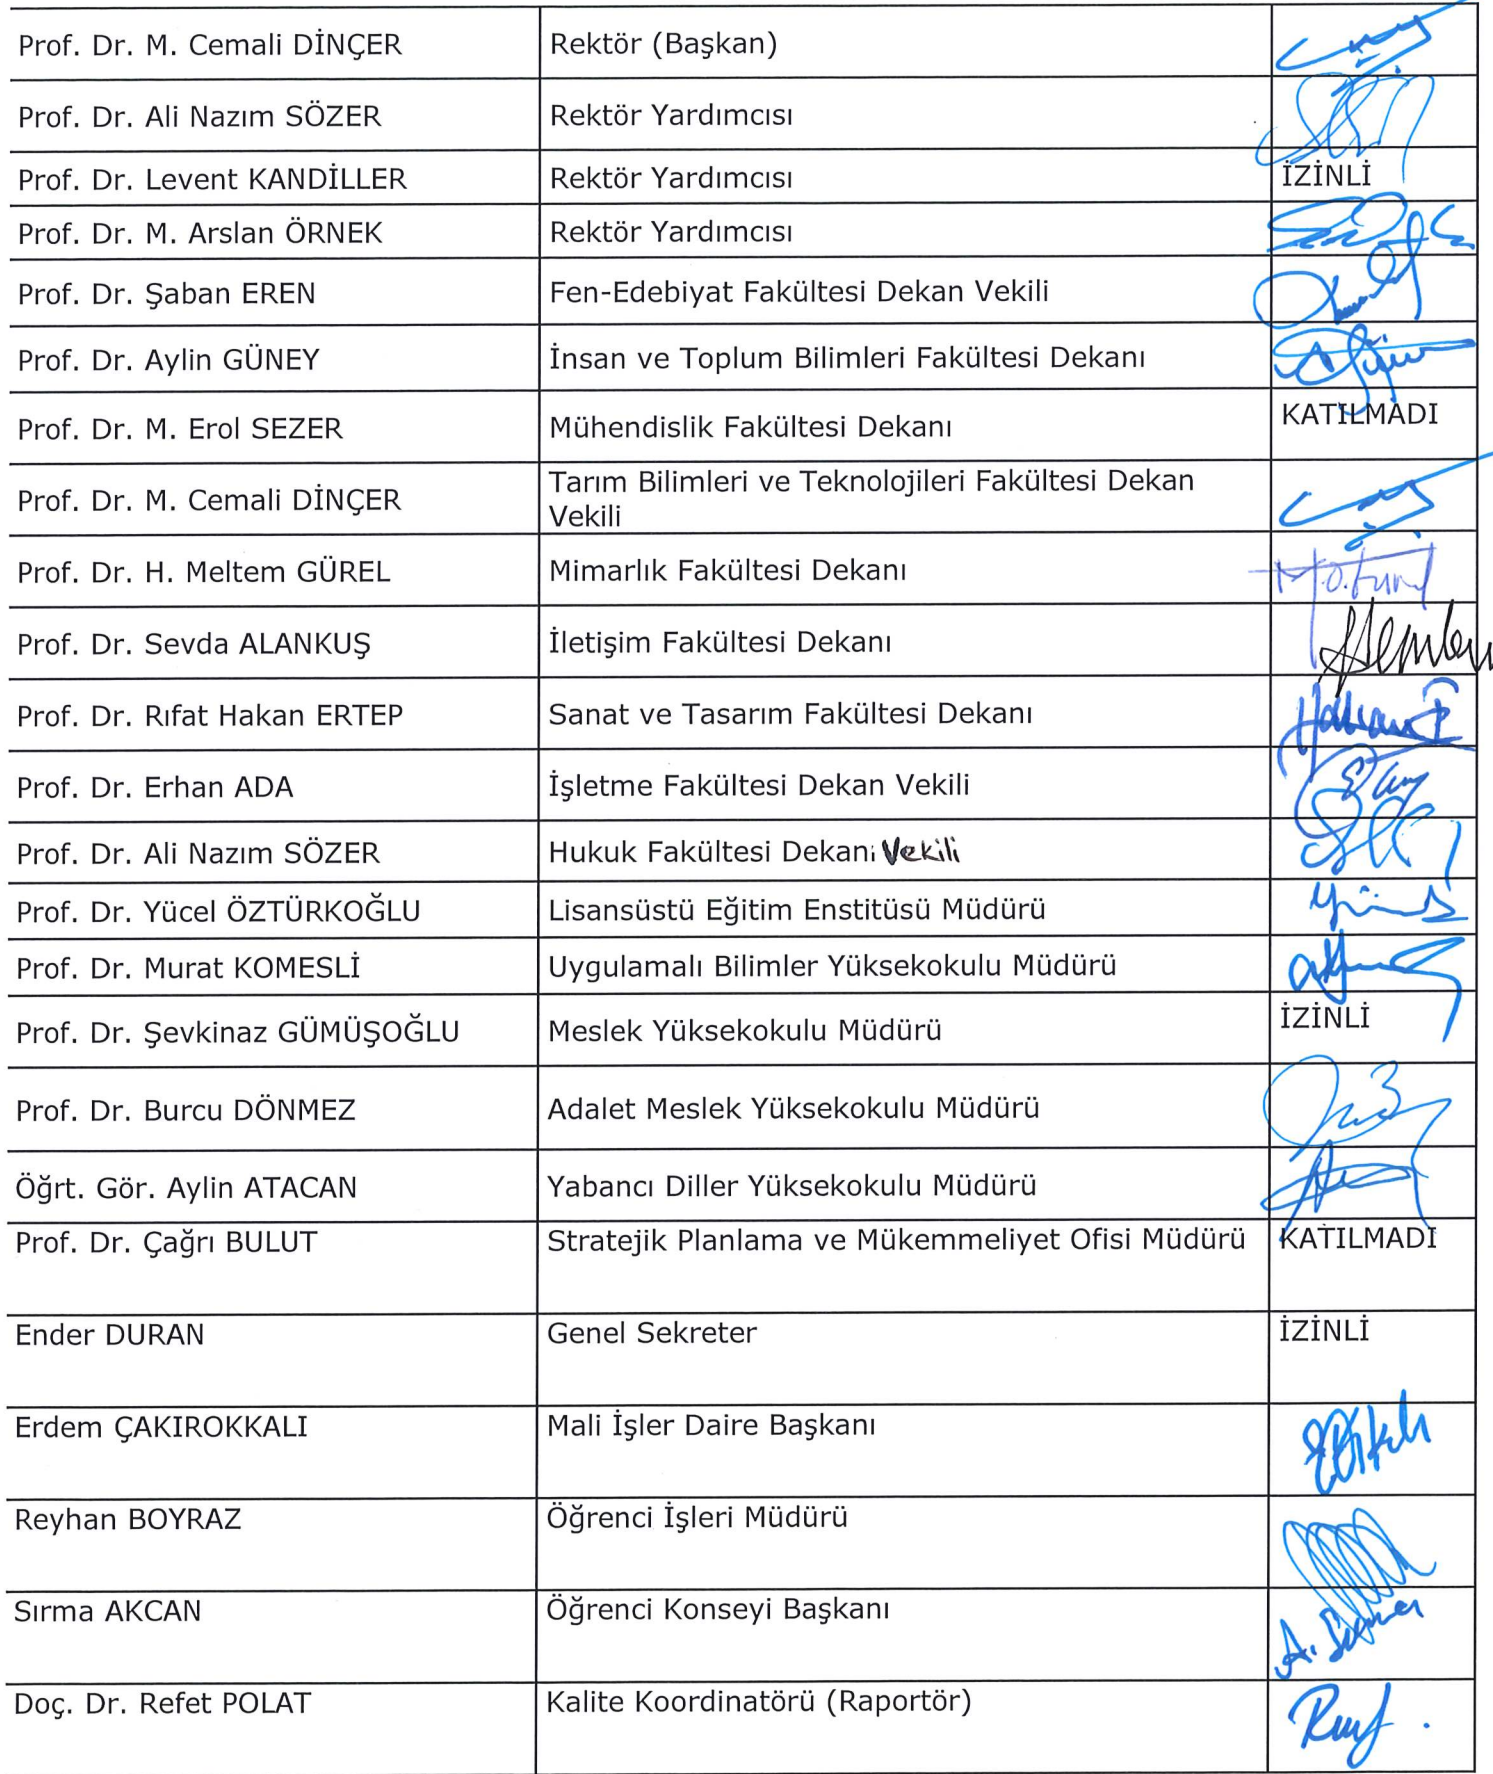 Prof. Dr. M. Cemali DİNÇER Rektör (Başkan)
Prof. Dr. Ali Nazım SÖZER Rektör Yardımcısı
Prof. Dr. Levent KANDİLLER Rektör Yardımcısı İZİNLİ
Prof. Dr. M. Arslan ÖRNEK Rektör Yardımcısı
Prof. Dr. Şaban EREN Fen-Edebiyat Fakültesi Dekan Vekili
Prof. Dr. Aylin GÜNEY İnsan ve Toplum Bilimleri Fakültesi Dekanı
Prof. Dr. M. Erol SEZER Mühendislik Fakültesi Dekanı KATILMADI
Prof. Dr. M. Cemali DİNÇER Tarım Bilimleri ve Teknolojileri Fakültesi Dekan
Vekili
Prof. Dr. H. Meltem GÜREL Mimarlık Fakültesi Dekanı
Prof. Dr. Sevda ALANKUŞ İletişim Fakültesi Dekanı
Prof. Dr. Rıfat Hakan ERTEP Sanat ve Tasarım Fakültesi Dekanı
Prof. Dr. Erhan ADA İşletme Fakültesi Dekan Vekili
Prof. Dr. Ali Nazım SÖZER Hukuk Fakültesi Dekanı Vekili
Prof. Dr. Yücel ÖZTÜRKOĞLU Lisansüstü Eğitim Enstitüsü Müdürü
Prof. Dr. Murat KOMESLİ Uygulamalı Bilimler Yüksekokulu Müdürü
Prof. Dr. Şevkinaz GÜMÜŞOĞLU Meslek Yüksekokulu Müdürü İZİNLİ
Prof. Dr. Burcu DÖNMEZ Adalet Meslek Yüksekokulu Müdürü
Öğrt. Gör. Aylin ATACAN Yabancı Diller Yüksekokulu Müdürü
Prof. Dr. Çağrı BULUT Stratejik Planlama ve Mükemmeliyet Ofisi Müdürü KATILMADI
Ender DURAN Genel Sekreter İZİNLİ
Erdem ÇAKIROKKALI Mali İşler Daire Başkanı
Reyhan BOYRAZ Öğrenci İşleri Müdürü
Sırma AKCAN Öğrenci Konseyi Başkanı
Doç. Dr. Refet POLAT Kalite Koordinatörü (Raportör)